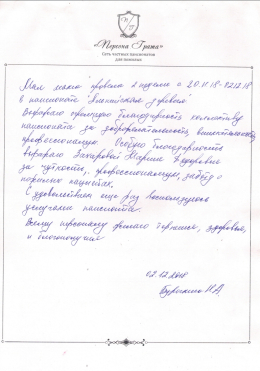 «Персона Грата»
Сеть частных пансионатов
для пожилых
Моя мама провела 2 недели с 20.11.18-02.12.18
в пансионате
Выражаю огромную благодарность коллективу
пансионата за доброжелательность,
профессионализм. Особую благодарность
выражаю Захаровой Марине Федоровне
за чуткость, профессионализм, заботу о
пациентах.
С удовольствием еще раз воспользуюсь
услугами пансионата.
Всему персоналу терпения, здоровья,
и благополучия
02.12.2018